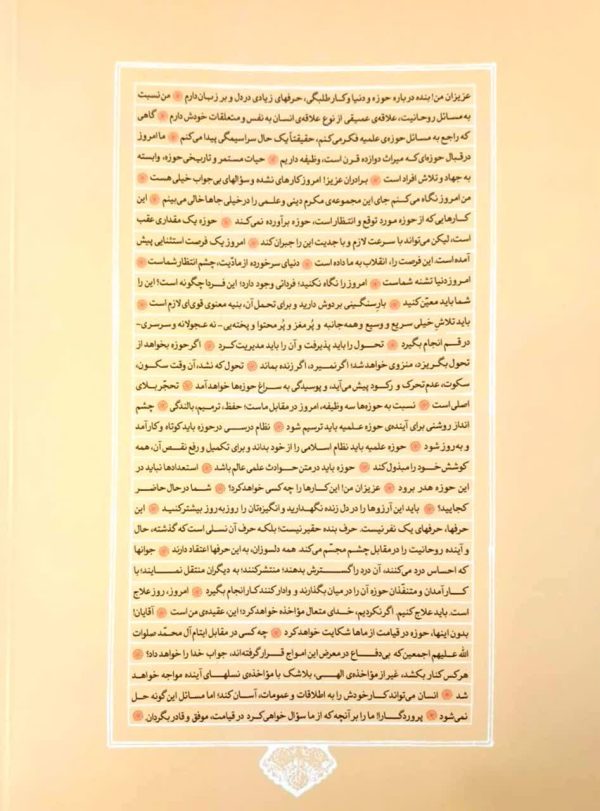 عزیزان من! بنده درباره حوزه و دنیا و کار طلبگی، حرفهای زیادی در دل و بر زبان دارم ❋ من نسبت
به مسائل روحانیت، علاقه‌ی عمیقی از نوع علاقه‌ی انسان به نفس و متعلقات خودش دارم ❋ گاهی
که راجع به مسائل حوزه‌ی علمیه فکر می‌کنم، حقیقتاً یک حال سراسیمگی پیدا می‌کنم ❋ ما امروز
در قبال حوزه‌ی که میراث دوازده قرن است، وظیفه داریم ❋ حیات مستمر و تاریخی حوزه، وابسته
به جهاد و تلاش افراد است ❋ برادران عزیز! امروز کارهای نشده و سؤالهای بی‌جواب خیلی هست ❋
من امروز نگاه می‌کنم جای این مجموعه‌ی مکرم دینی و علمی را در خیلی جاها خالی می‌بینم ❋ این
کارهایی که از حوزه مورد توقع و انتظار است، حوزه برآورده نمی‌کند ❋ حوزه یک مقداری عقب
است، لیکن می‌تواند با سرعت لازم و با جدیت این را جبران کند ❋ امروز یک فرصت استثنایی پیش
آمده است. این فرصت را، انقلاب به ما داده است ❋ دنیای سرخورده از مادّیت، چشم انتظار شماست ❋
امروز دنیا تشنه شماست ❋ امروز را نگاه نکنید؛ فردائی وجود دارد؛ این فردا چگونه است؟ این را
شما باید معیّن کنید ❋ بار سنگینی بر دوش دارید و برای تحمل آن، بنیه معنوی قوی‌ای لازم است ❋
باید تلاش خیلی سریع و وسیع و همه‌جانبه و پُرمغز و پُرمحتوا و پخته‌یی- نه عجولانه و سرسری-
در قم انجام بگیرد ❋ تحول را باید پذیرفت و آن را باید مدیریت کرد ❋ اگر حوزه بخواهد از
تحول بگریزد، منزوی خواهد شد؛ اگر نمیرد، اگر زنده بماند ❋ تحول که نشد، آن وقت سکون،
سکوت، عدم تحرک و رکود پیش می‌آید، و پوسیدگی به سراغ حوزه‌ها خواهد آمد ❋ تحجّر بلای
اصلی است ❋ نسبت به حوزه‌ها سه وظیفه، امروز در مقابل ماست؛ حفظ، ترمیم، بالندگی ❋ چشم
انداز روشنی برای آینده‌ی حوزه علمیه باید ترسیم شود ❋ نظام درسی در حوزه باید کوتاه و کارآمد
و به روز شود ❋ حوزه علمیه باید نظام اسلامی را از خود بداند و برای تکمیل و رفع نقص آن، همه
کوشش خود را مبذول کند ❋ حوزه باید در متن حوادث علمی عالم باشد ❋ استعدادها نباید در
این حوزه هدر برود ❋ عزیزان من! این کارها را چه کسی خواهد کرد؟ ❋ شما در حال حاضر
کجایید؟ ❋ باید این آرزوها را در دل زنده نگهدارید و انگیزه‌تان را روز به روز بیشتر کنید ❋ این
حرفها، حرفهای یک نفر نیست. حرف بنده حقیر نیست؛ بلکه حرف آن نسلی است که گذشته، حال
و آینده روحانیت را در مقابل چشم مجسّم می‌کند. همه دلسوزان، به این حرفها اعتقاد دارند ❋ جوانها
که احساس درد می‌کنند، آن درد را گسترش بدهند؛ منتشر کنند؛ به دیگران منتقل نمایند؛ با
کارآمدان و متنفّذان حوزه آن را در میان بگذارند و وادار کنند کار انجام بگیرد ❋ امروز، روز علاج
است. باید علاج کنیم. اگر نکردیم، خدای متعال مؤاخذه خواهد کرد؛ این، عقیده‌ی من است ❋ آقایان!
بدون اینها، حوزه در قیامت از ماها شکایت خواهد کرد ❋ چه کسی در مقابل ایتام آل محمّد صلوات
الله علیهم اجمعین که بی‌دفاع در معرض این امواج قرار گرفته‌اند، جواب خدا را خواهد داد؟ ❋
هر کس کنار بکشد، غیر از مؤاخذه‌ی الهی، بلاشک با مؤاخذه‌ی نسلهای آینده مواجه خواهد
شد ❋ انسان می‌تواند کار خودش را به اطلاقات و عمومات، آسان کند؛ اما مسائل این گونه حل
نمی‌شود ❋ پروردگارا! ما را بر آنچه که از ما سؤال خواهی کرد در قیامت، موفق و قادر بگردان. ❋